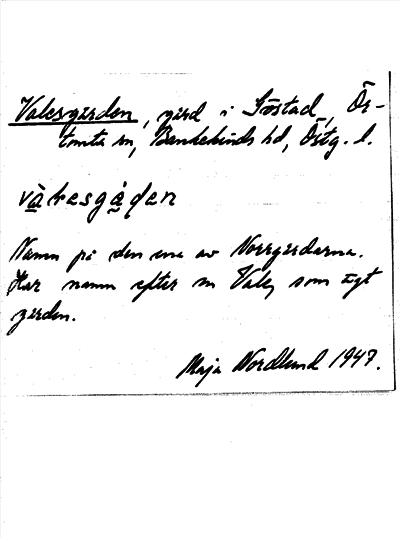 Valesgården, gård i Göstad, Ör-
tomta sn, Bankekinds hd, Östg. l.
Namn på den ena av Norrgårdarna.
Har namn efter en Vale, som ägt
gården.
Maja Nordlund 1947.